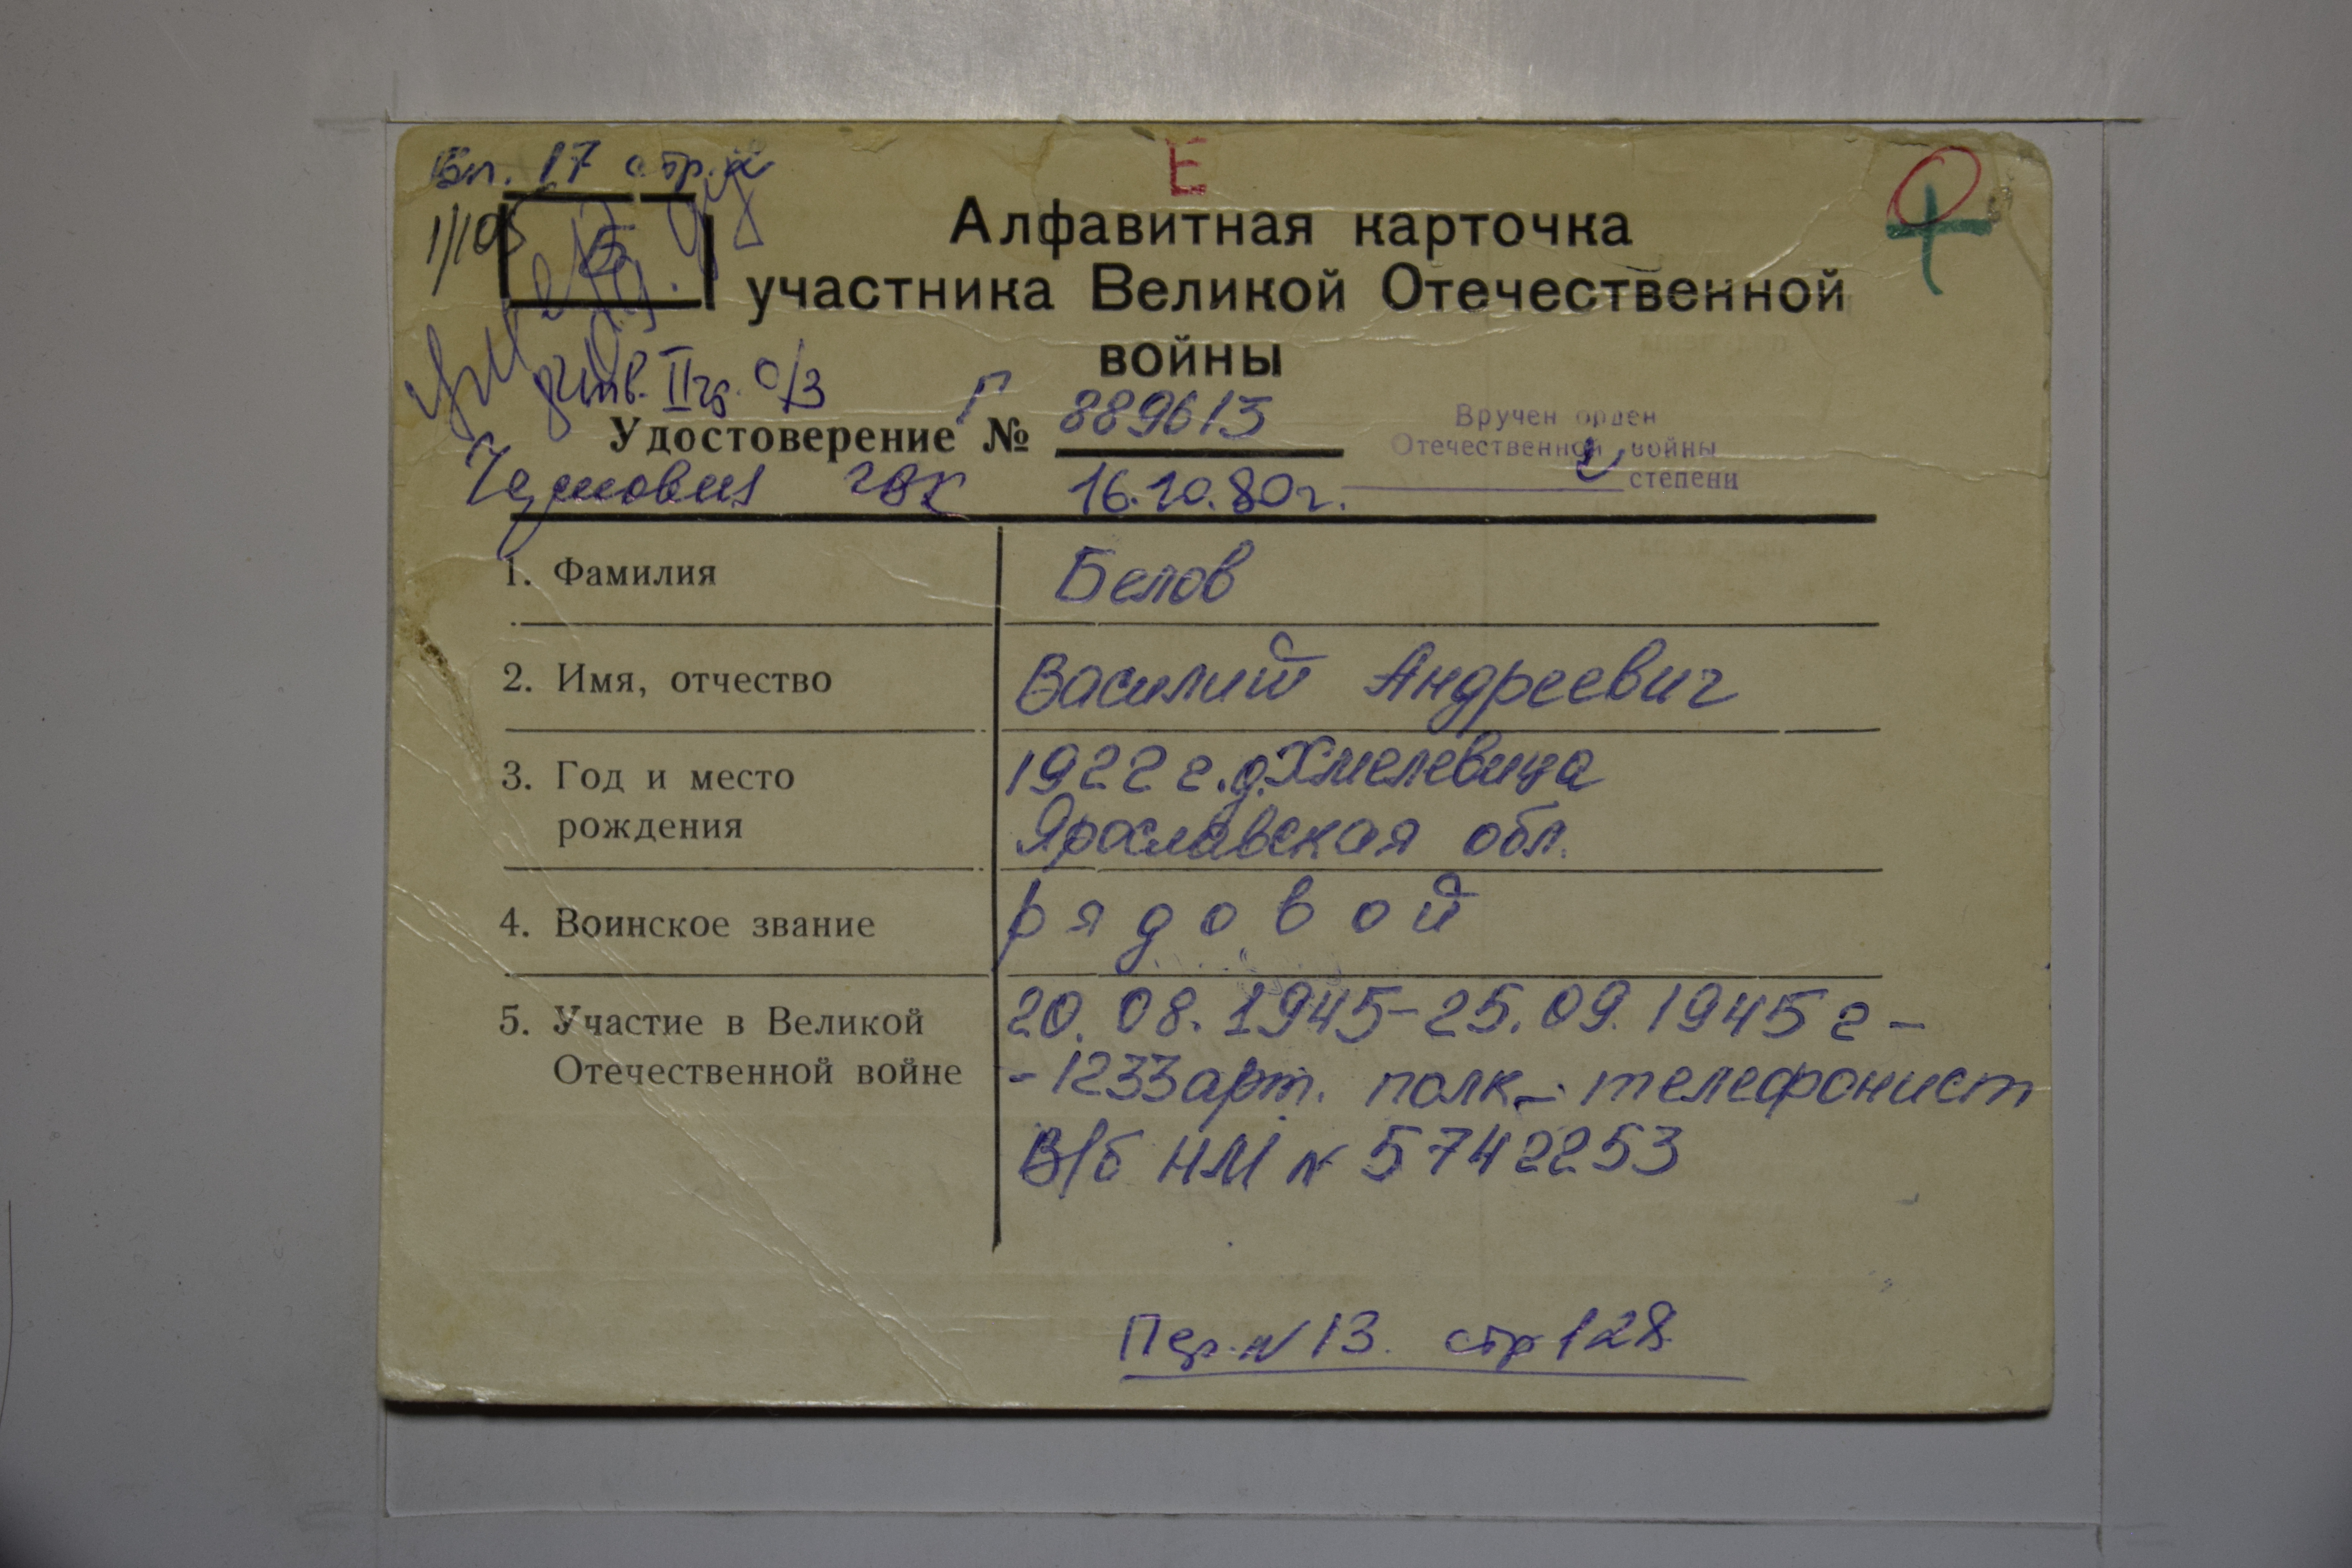 Е
Вп. 17 стр.
1/105
Алфавитная карточка
участника Великой Отечественной
войны
инв. II гр. о/з
Удостоверение Г № 889613
Вручен орден
Отечественной войны
степени
ГВК 16.10.80г.
1. Фамилия Белов
2. Имя, отчество Василий Андреевич
3. Год и место 1922 г. д. Хмелевица
рождения Ярославская обл.
4. Воинское звание рядовой
5. Участие в Великой 20.08.1945-25.09.1945 г -
Отечественной войне - 1233 арт. полк - телефонист
В/б НМ № 5742253
Пер. № 13. стр 128